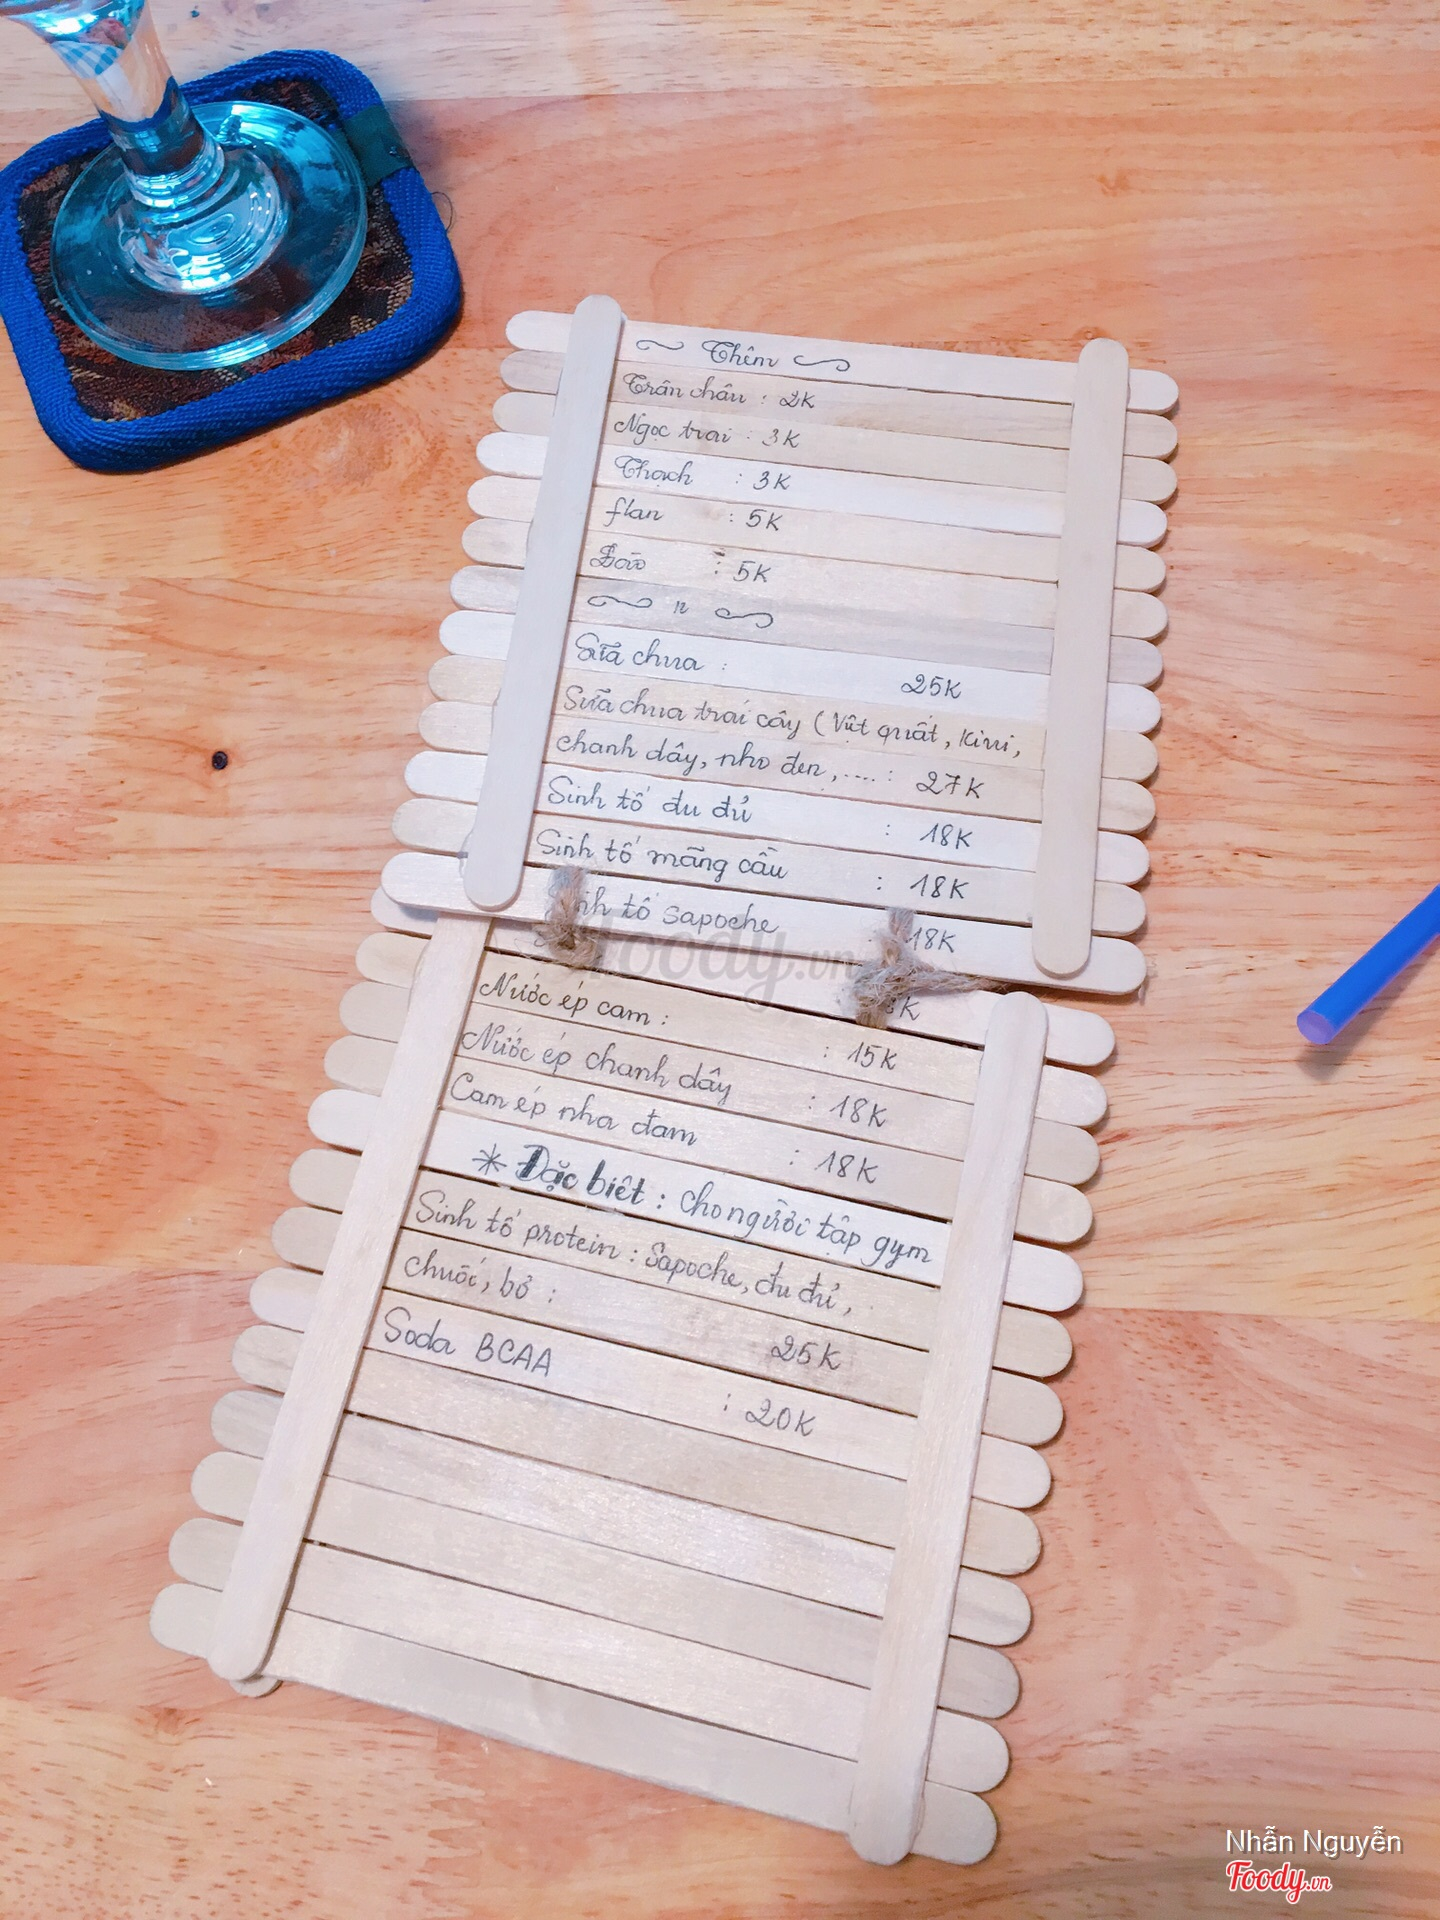 Thêm
Trân châu : 2K
Ngọc trai : 3K
Thạch : 3K
flan : 5K
Đào : 5K
Sữa chua : 25K
Sữa chua trái cây (Việt quất, Kiwi,
chanh dây, nho đen, .... : 27K
Sinh tố đu đủ : 18K
Sinh tố mãng cầu : 18K
Sinh tố sapoche : 18K
foody.vn
Nước ép cam : : 15K
Nước ép chanh dây : 18K
Cam ép nha đam : 18K
* Đặc biệt : cho người tập gym
Sinh tố protein : Sapoche, đu đủ,
chuối, bơ : 25K
Soda BCAA : 20K
Nhẫn Nguyễn
Foody.vn